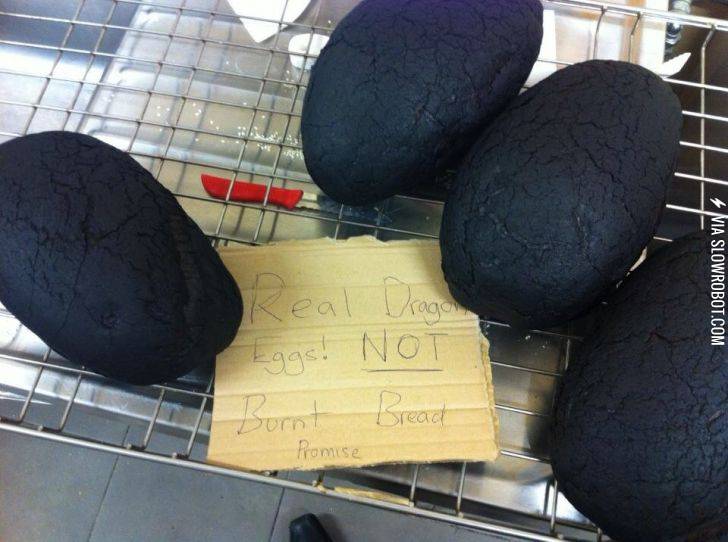 Real Dragon
Eggs! NOT
Burnt Bread
Promise
VIA SLOWROBOT.COM